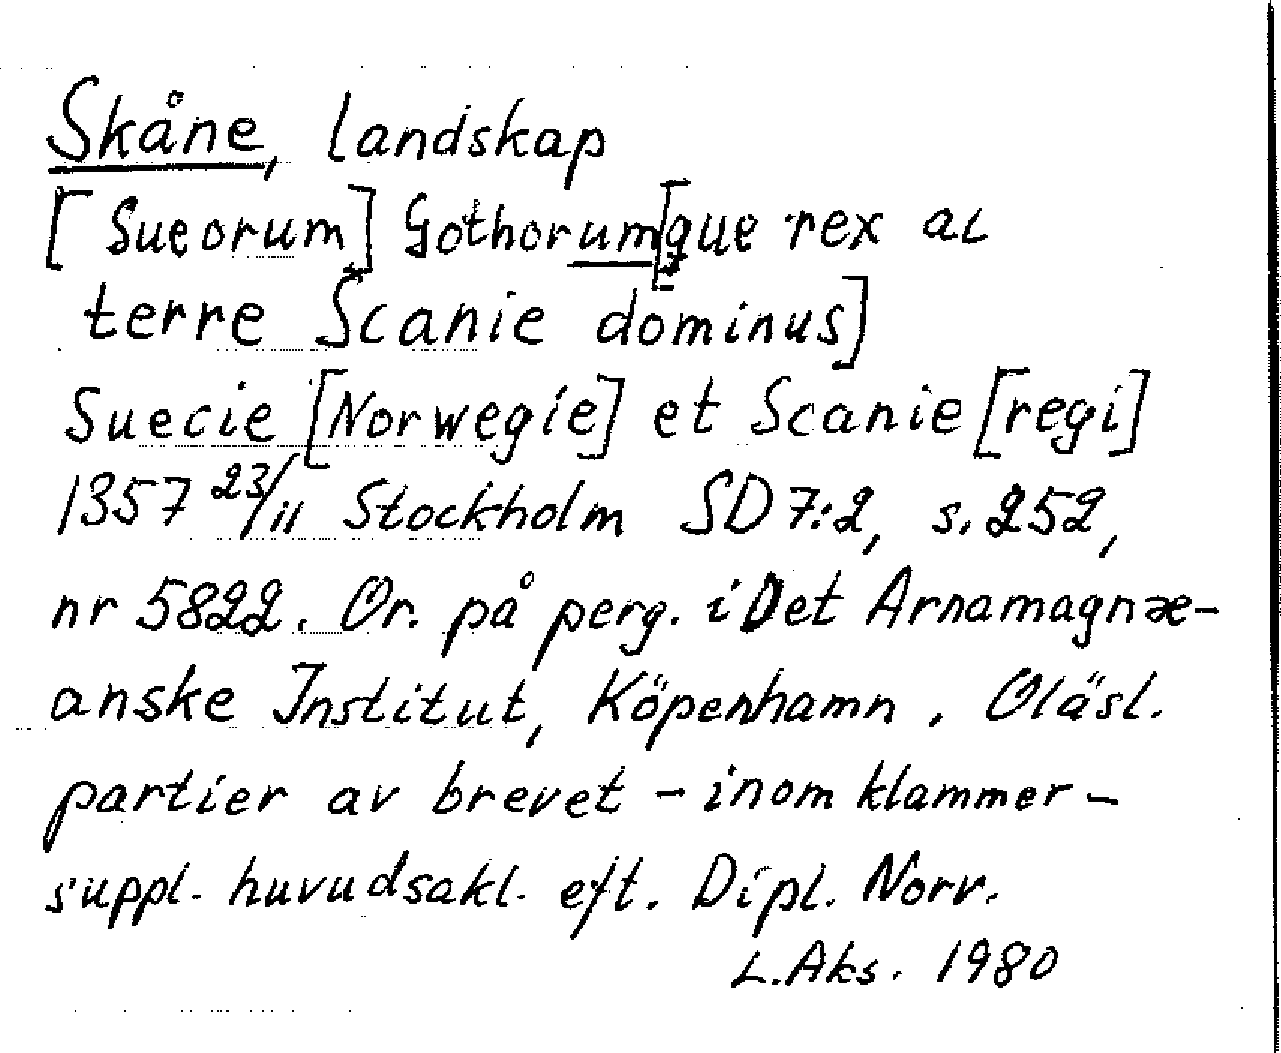 Skåne, landskap
[Sueorum] Gothorum[que rex ac
terre Scanie dominus]
Suecie [Norwegie] et Scanie [regi]
1357 23/11 Stockholm SD 7:2, s. 252,
nr 5822. Or. på perg. i Det Arnamagnæ-
anske Institut, Köpenhamn. Oläsl.
partier av brevet - inom klammer -
suppl. huvudsakl. eft. Dipl. Norv.
L. Aks. 1980